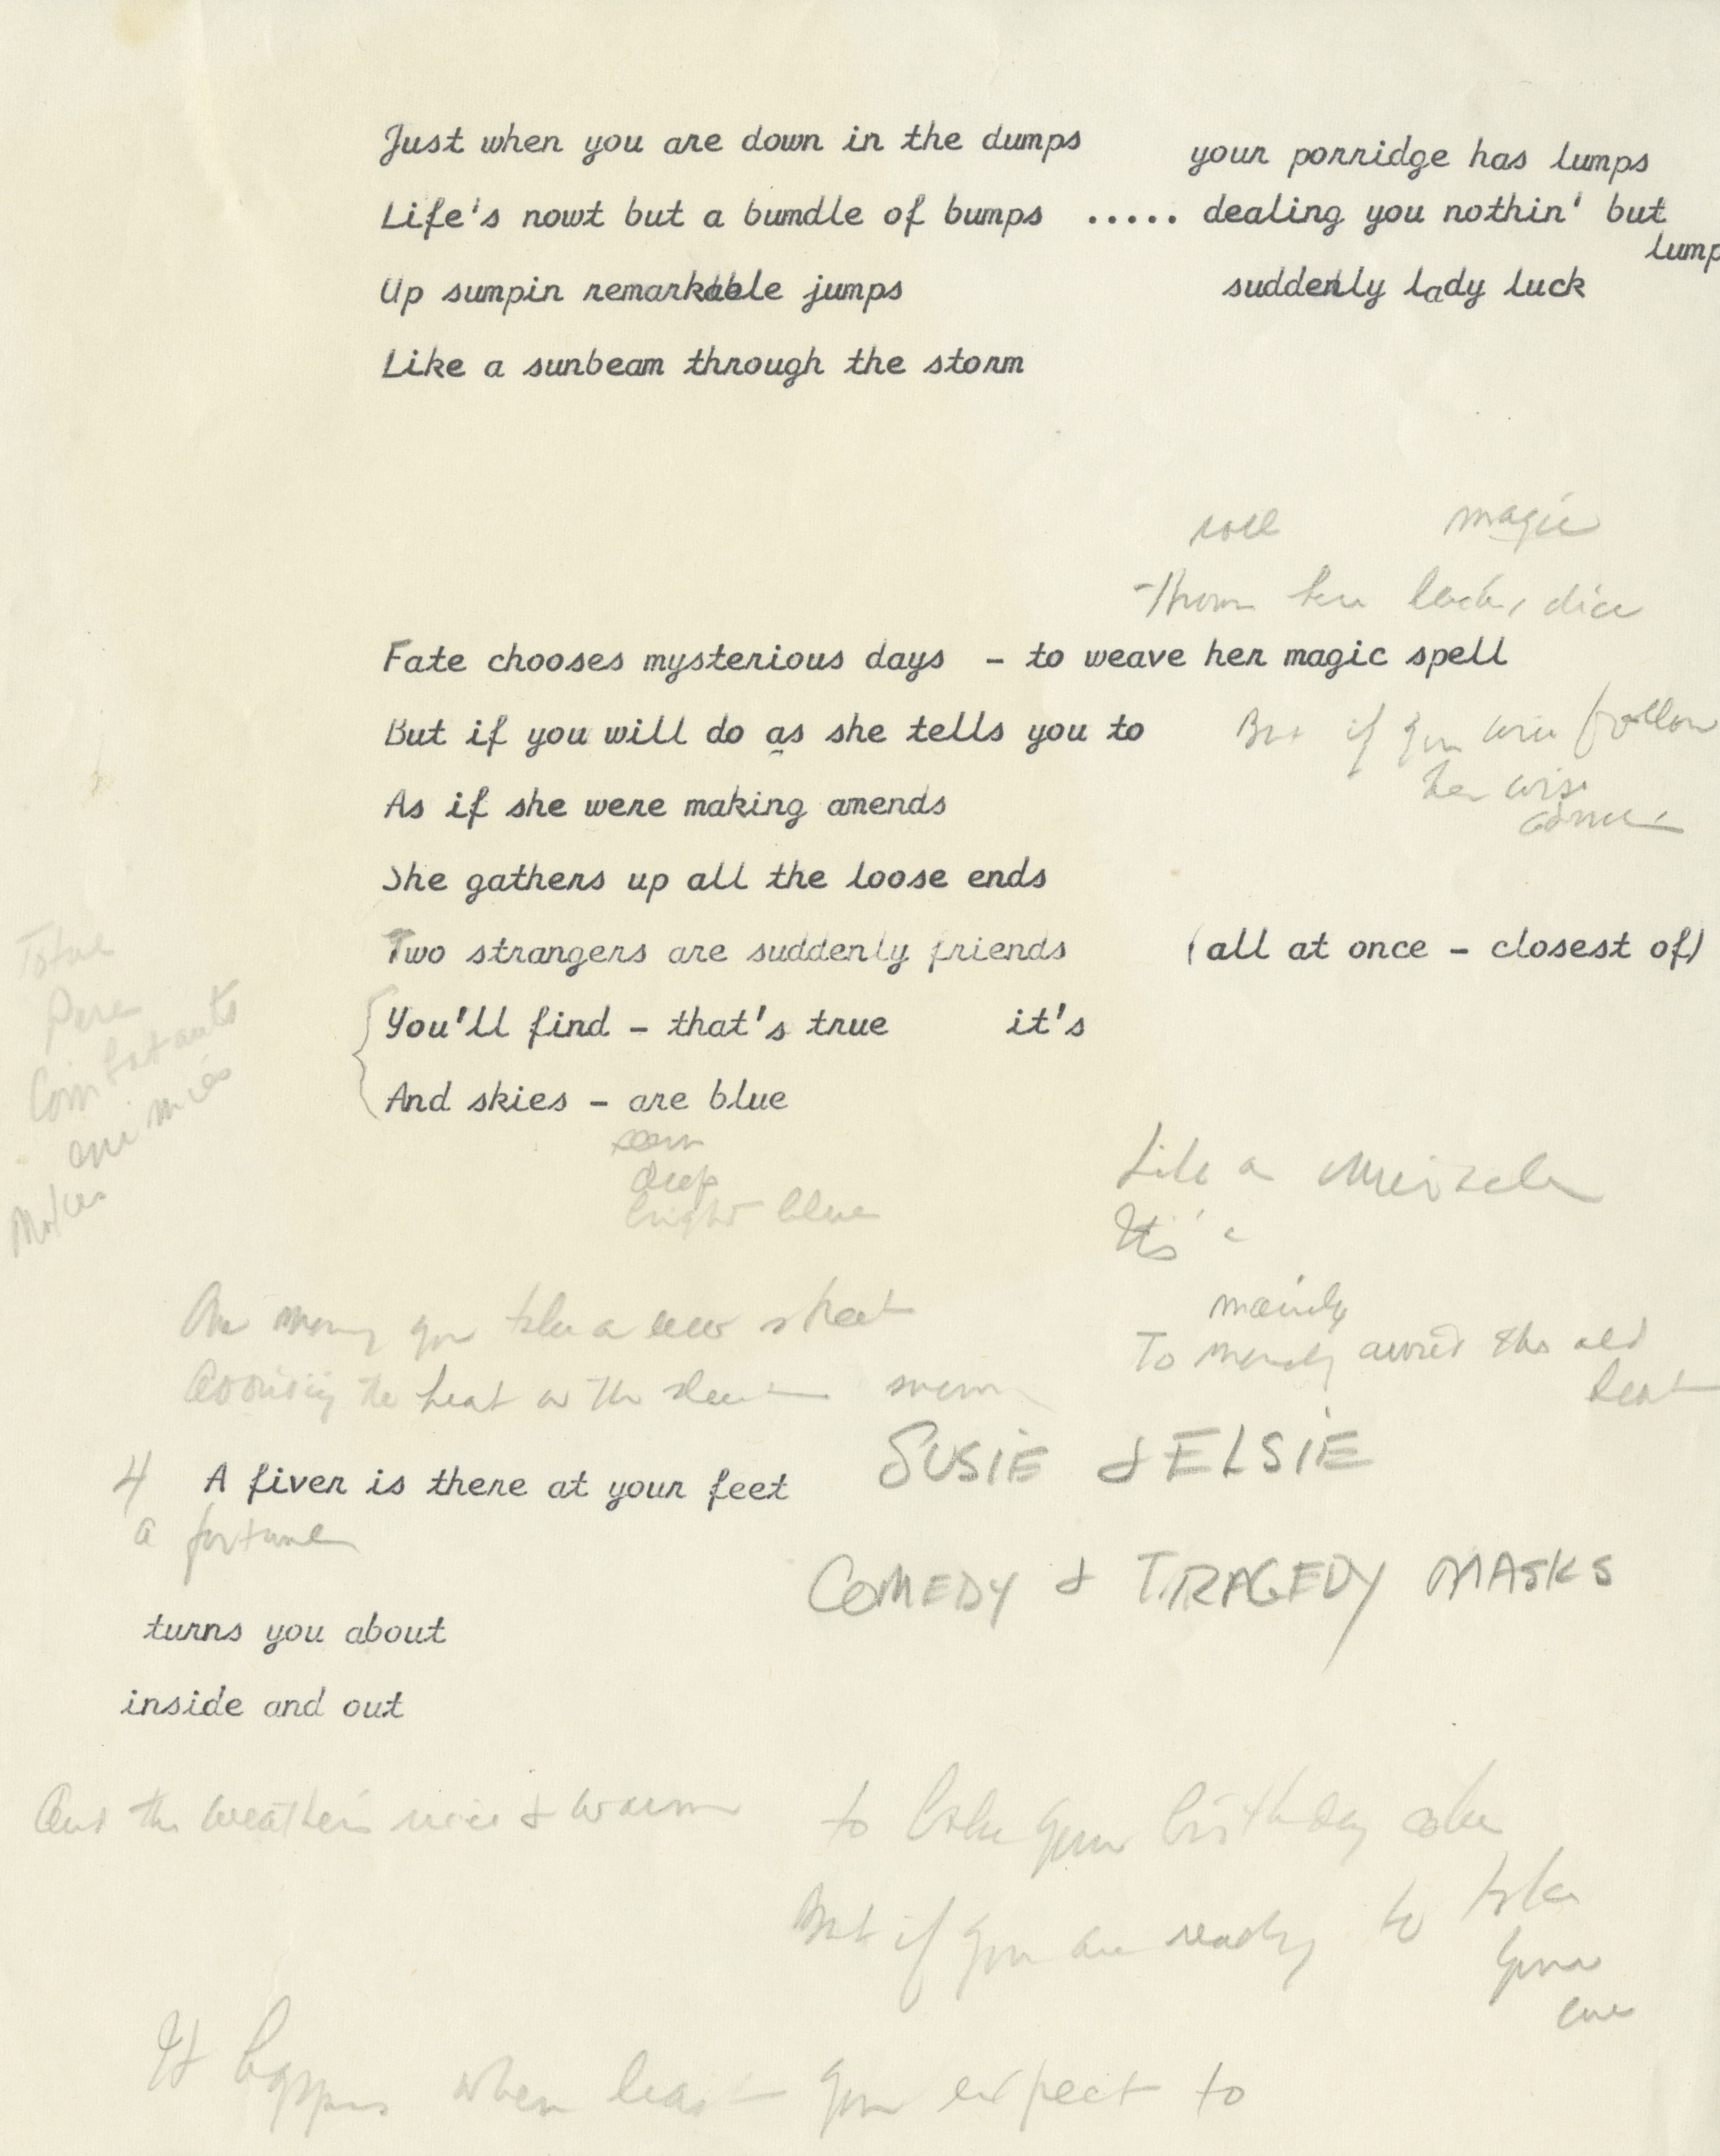 Just when you are down in the dumps
your porridge has lumps
Life's nowt but a bumdle of bumps ..... dealing you nothin' but
lump
Up sumpin remarkable jumps
suddenly lady luck
Like a sunbeam through the storm
roll magic
Throw her lucky dice
Fate chooses mysterious days - to weave her magic spell
But if you will do as she tells you to
But if you will follow
her wise
advice
As if she were making amends
She gathers up all the loose ends
Two strangers are suddenly friends (all at once - closest of)
Total
Pere
Combatants
enimies
Makes
You'll find - that's true it's
And skies - are blue
deep
bright blue
Like a Miracle
It's a
One you take a new street
mainly
To merely avoid the old
beat
Avoiding the heat or the sleet
SUSIE & ELSIE
4 A fiver is there at your feet
a fortune
COMEDY & TRAGEDY MASKS
turns you about
inside and out
And the weather's nice & warm
to bake your birthday cake
But if you are ready to take
your
cue
It happens when least you expect to